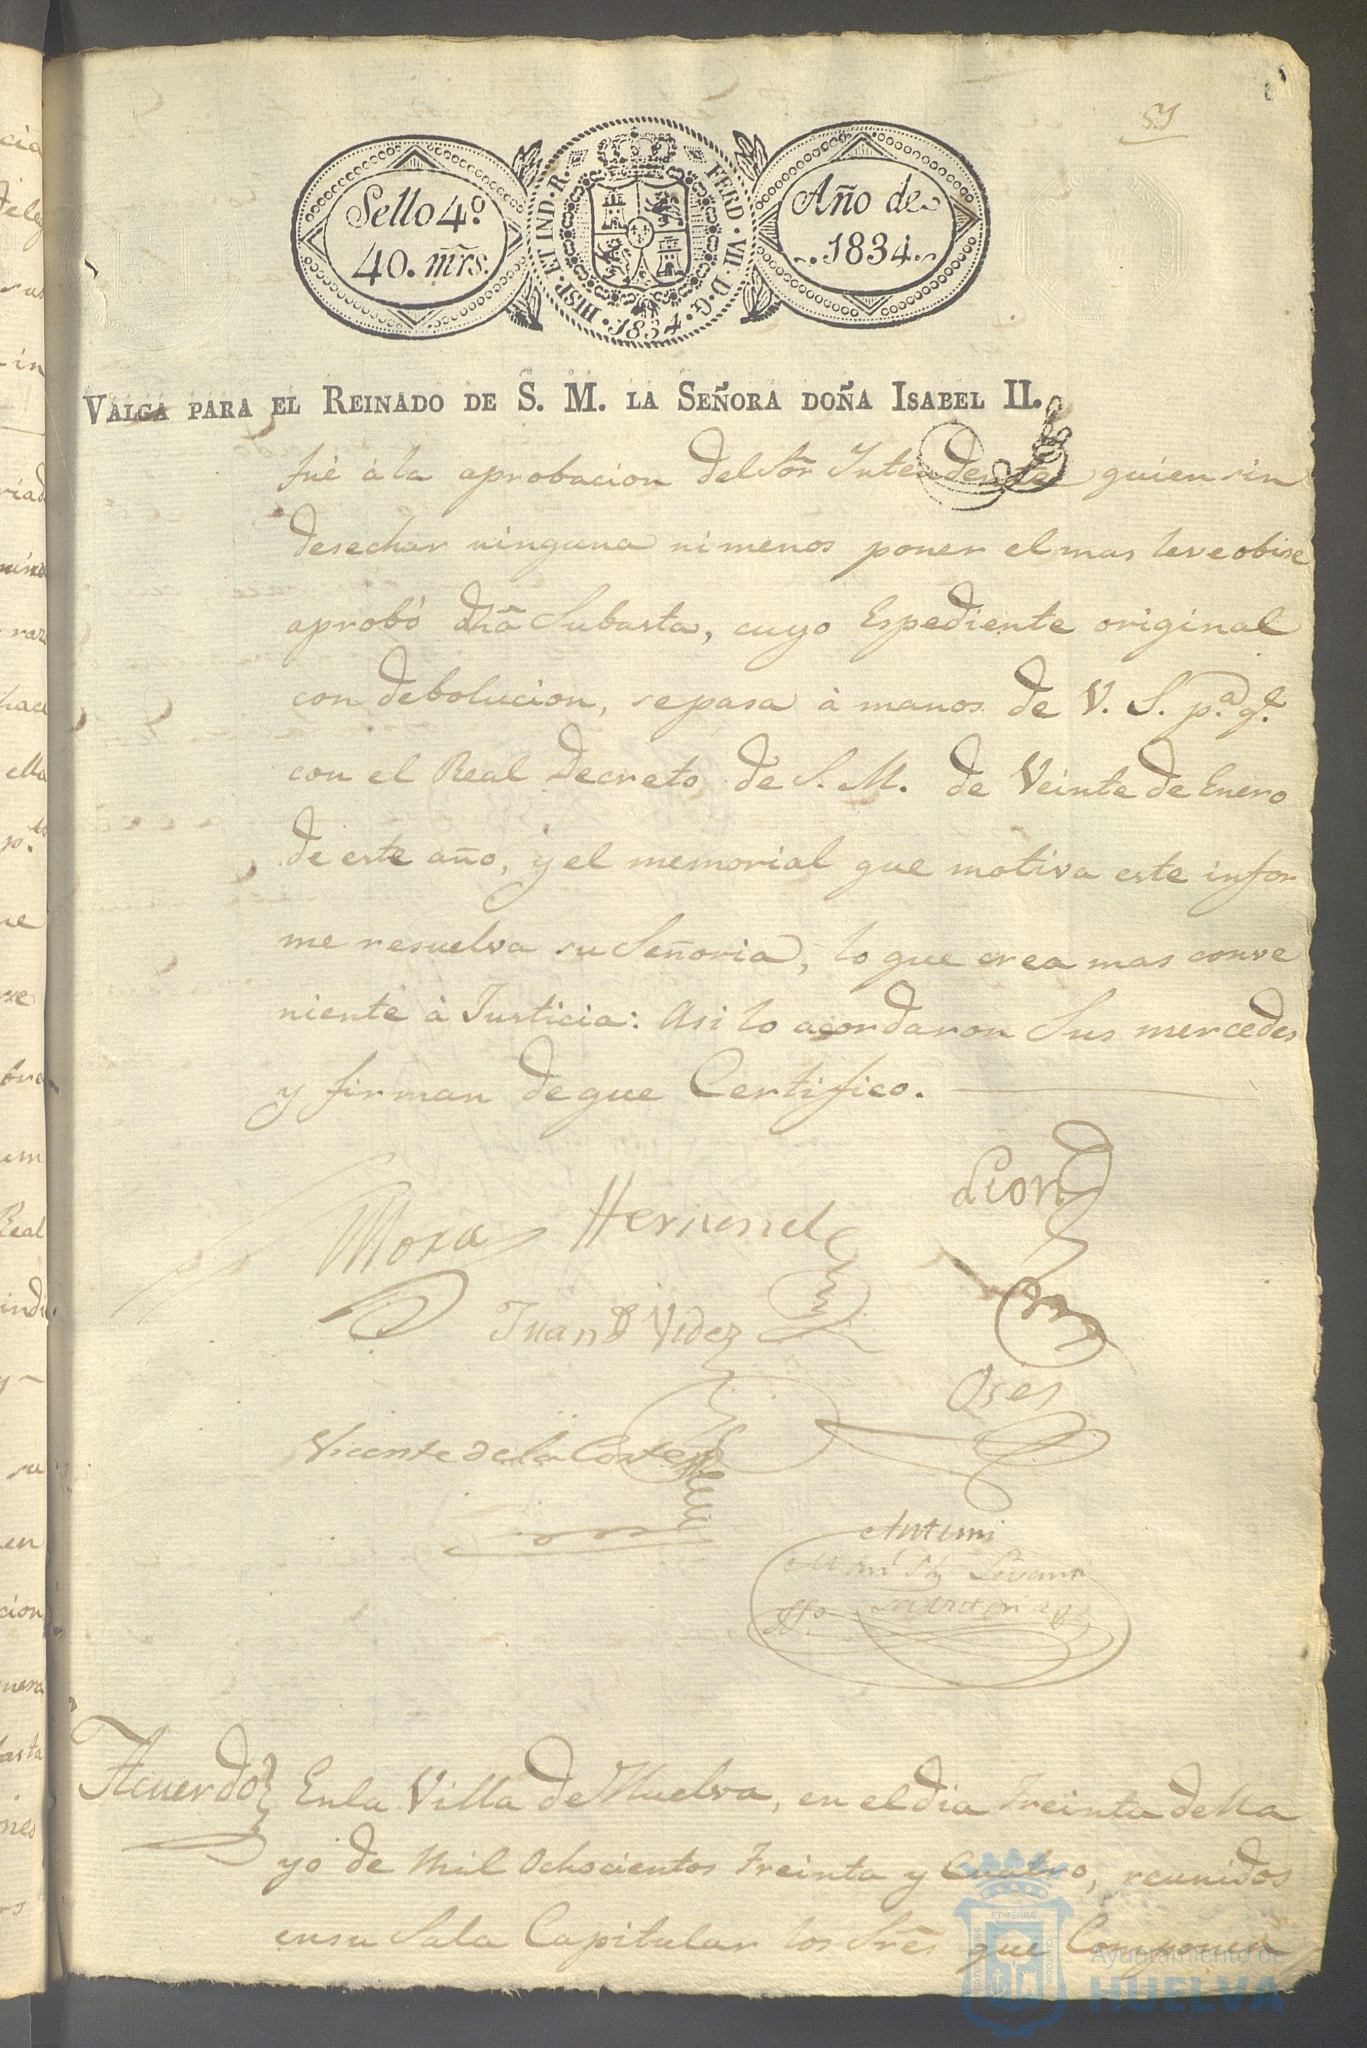 51
Sello 4º
40. mrs.
HISP. ET IND. R.
FERD. VII. D. G.
1834
Año de
1834
VALGA PARA EL REINADO DE S. M. LA SEÑORA DOÑA ISABEL II.
fué a la aprobacion del Sõr Intendente quien sin
desechar ninguna ni menos poner el mas leve obise
aprobó dhã Subasta, cuyo Espediente original
con debolucion, se pasa à manos de V. S. p.ª q.e
con el Real Decreto de S. M. de Veinte de Enero
de este año, y el memorial que motiva este infor
me resuelva su Señoria, lo que crea mas conve
niente à Justicia: Asi lo acordaron Sus mercedes
y firman de que Certifico.
Mora Hernand.z Leon
Juan Videz
Oses
Vicente de la Corte
Antemi
Acuerdo En la Villa de Huelva, en el dia Treinta de Ma
yo de Mil Ochocientos Treinta y Cuatro, reunidos
en su Sala Capitular los Srẽs que Componen
Ayuntamiento de
HUELVA